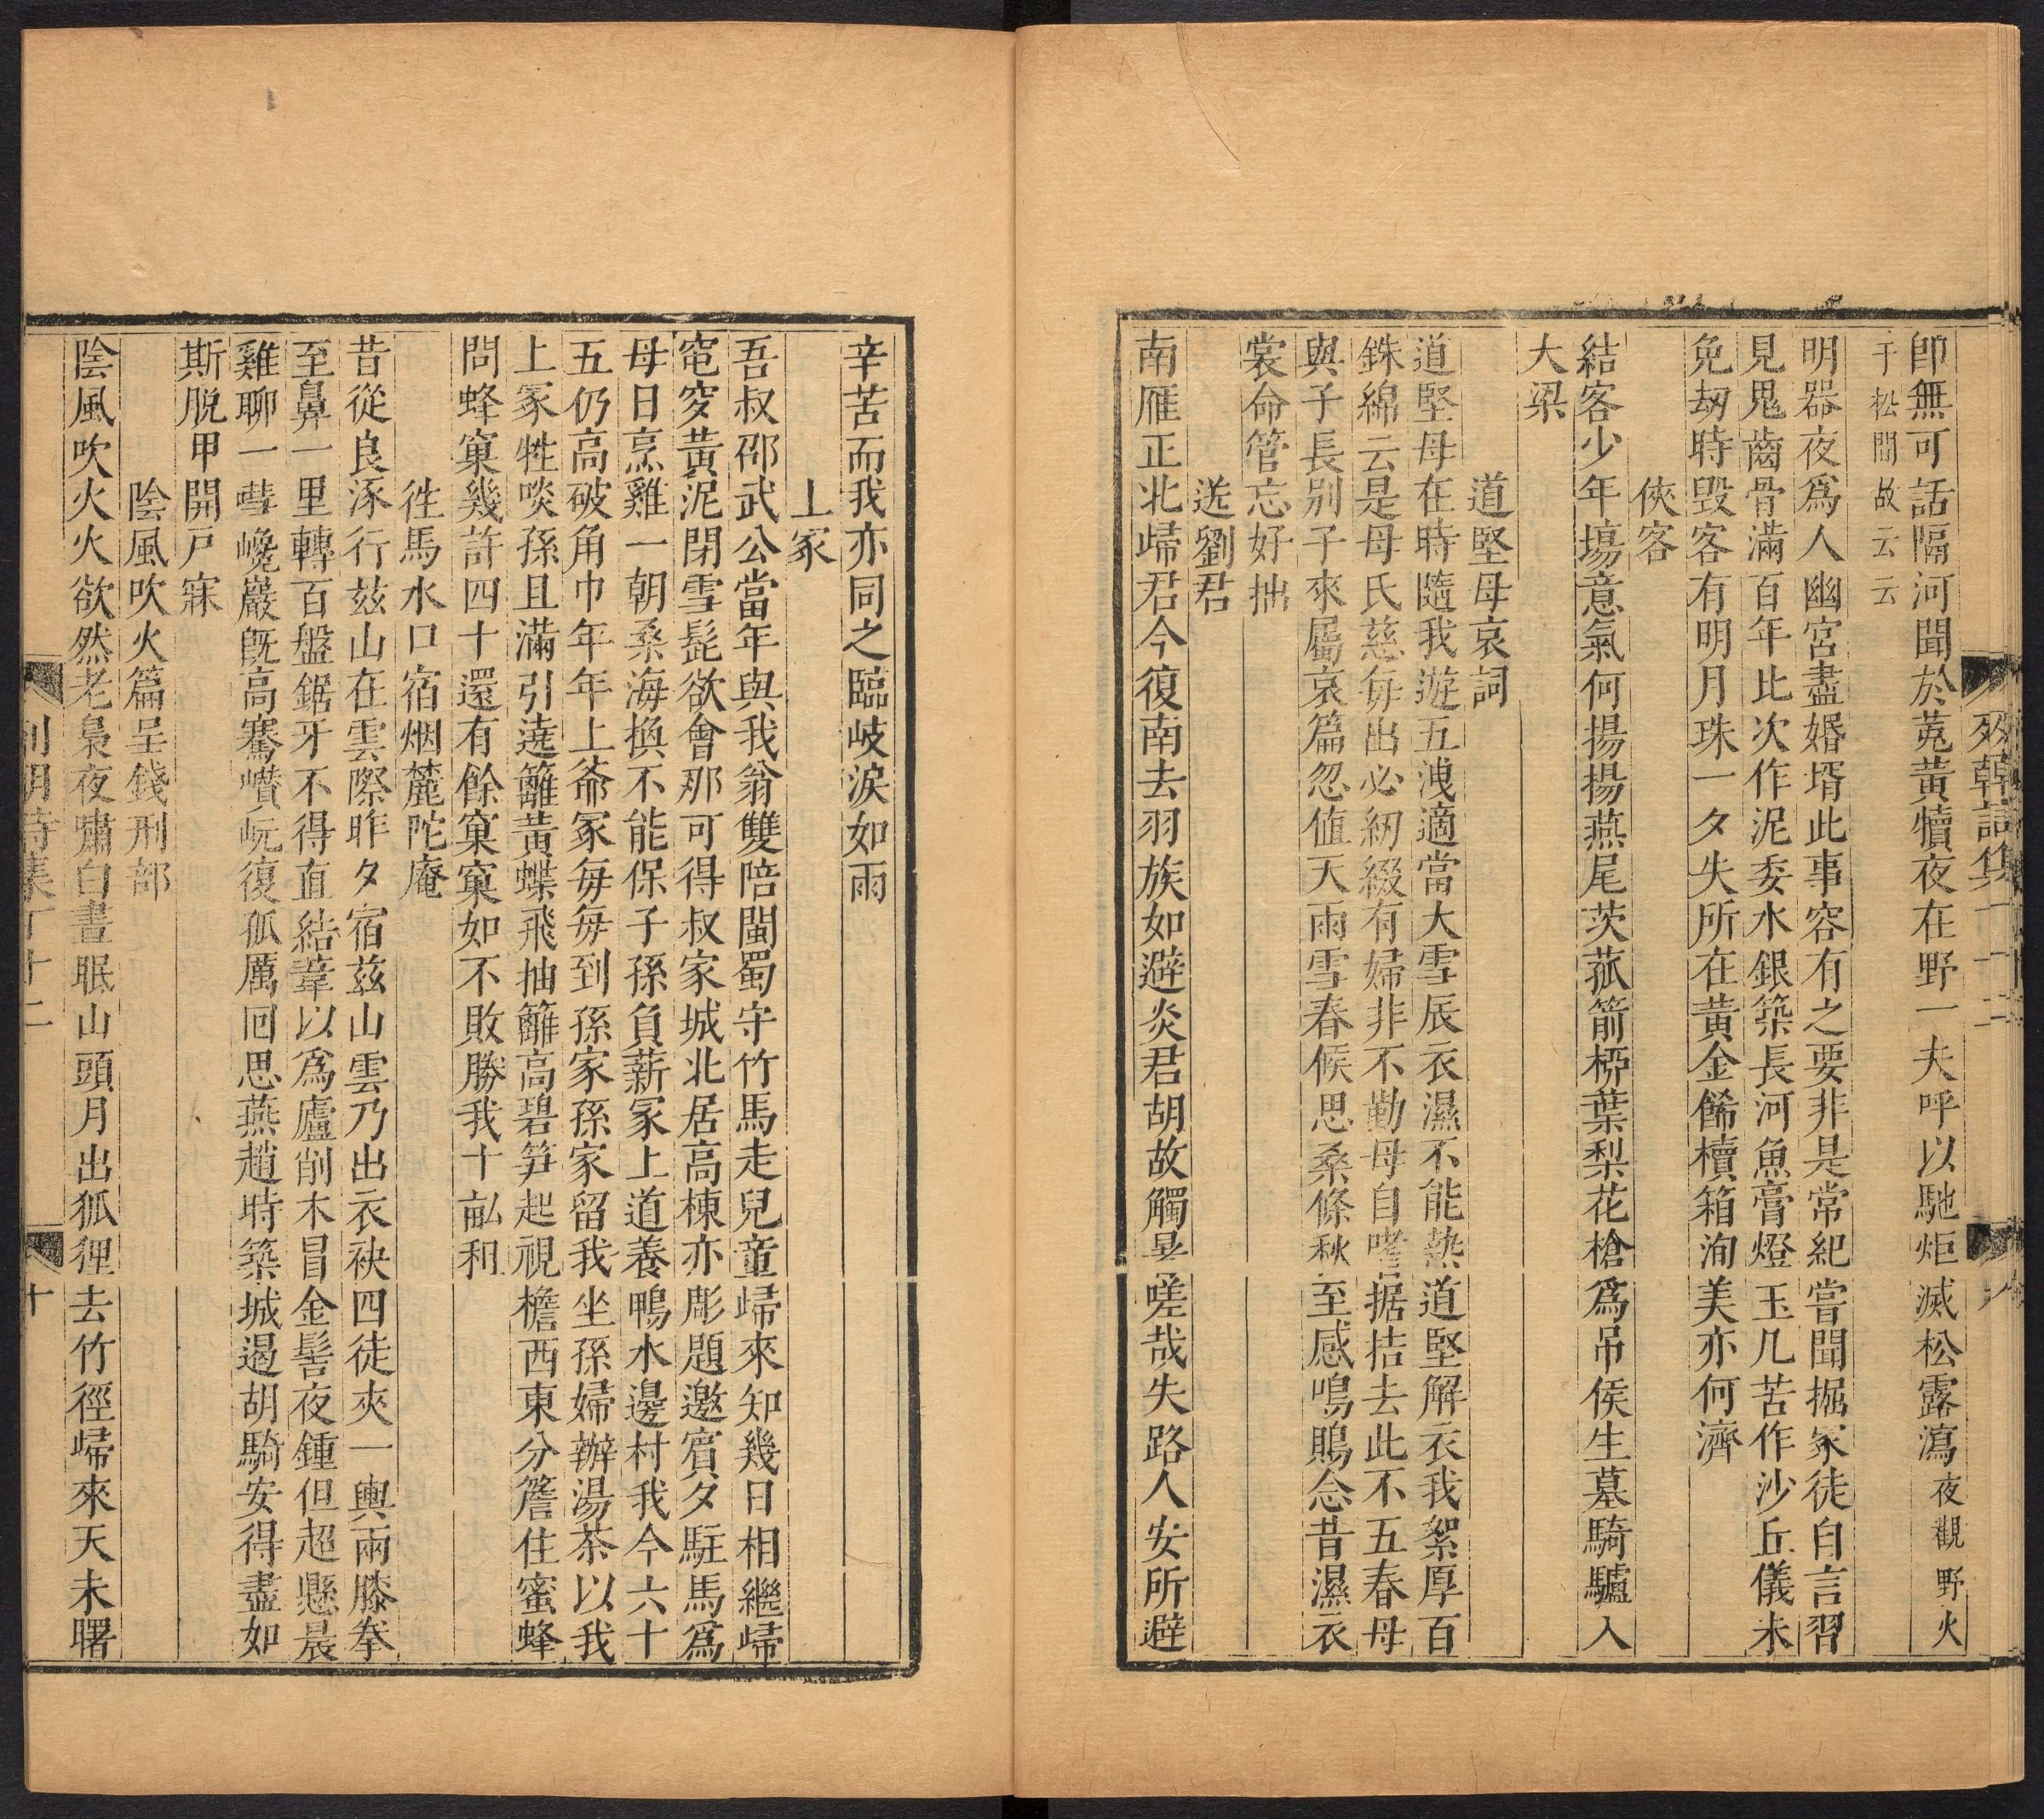 卽無可話隔河聞於菟黃犢夜在野一夫呼以馳炬滅松露瀉夜觀野火
于松間故云云
明器夜爲人幽宮盡婚壻此事容有之要非是常紀嘗聞掘冢徒自言習
見鬼齒骨滿百年此次作泥委水銀築長河魚膏燈玉几苦作沙丘儀未
免刼時毀客有明月珠一夕失所在黃金餙櫝箱洵美亦何濟
俠客
結客少年塲意氣何揚揚燕尾茨菰箭桺葉梨花槍爲吊侯生墓騎驢入
大梁
道堅母哀詞
道堅母在時隨我遊五洩適當大雪辰衣濕不能熱道堅解衣我絮厚百
銖綿云是母氏慈每出必紉綴有婦非不勤母自嗜拮据去此不五春母
與子長別子來屬哀篇忽值天雨雪春候思桑條秋至感鳴鵙念昔濕衣
裳命管忘好拙
送劉君
南雁正北歸君今復南去羽族如避炎君胡故觸暑嗟哉失路人安所避
辛苦而我亦同之臨岐淚如雨
上冢
吾叔邵武公當年與我翁雙陪閩蜀守竹馬走兒童歸來知幾日相繼歸
窀穸黃泥閉雪髭欲會那可得叔家城北居高棟亦彫題邀賓夕駐馬爲
母日烹雞一朝桑海換不能保子孫負薪冢上道養鴨水邊村我今六十
五仍高破角巾年年上爺冢每每到孫家孫家留我坐孫婦辦湯茶以我
上冢牲啖孫且滿引遶籬黃蝶飛抽籬高碧笋起視檐西東分簷住蜜蜂
問蜂窠幾許四十還有餘窠窠如不敗勝我十畝租
徃馬水口宿烟麓陀庵
昔從良涿行茲山在雲際昨夕宿茲山雲乃出衣袂四徒夾一輿兩膝拳
至鼻一里轉百盤鋸牙不得直結葦以爲廬削木冒金髻夜鍾但超懸晨
雞聊一嘒巉巖旣高騫巑岏復孤厲回思燕趙時築城遏胡騎安得盡如
斯脫甲開戶寐
陰風吹火篇呈錢刑部
陰風吹火火欲然老梟夜嘯白晝眠山頭月出狐狸去竹徑歸來天未曙